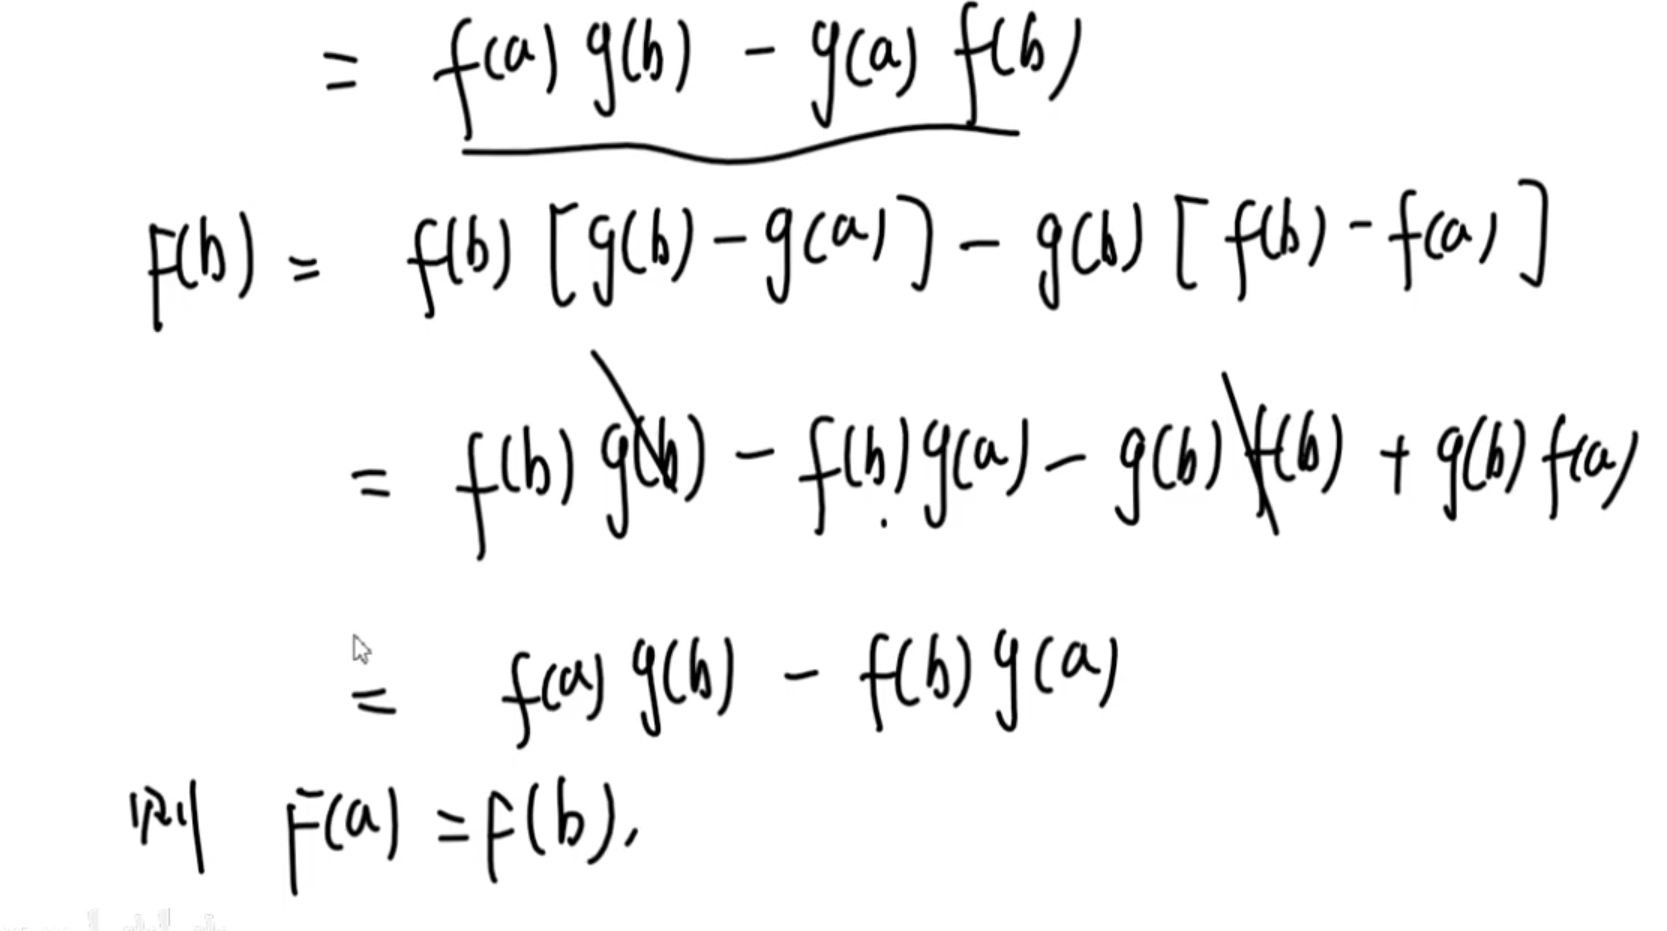 = f(a) g(b) - g(a) f(b)
F(b) = f(b) [g(b) - g(a)] - g(b) [f(b) - f(a)]
= f(b) g(b) - f(b) g(a) - g(b) f(b) + g(b) f(a)
= f(a) g(b) - f(b) g(a)
则 F(a) = F(b),